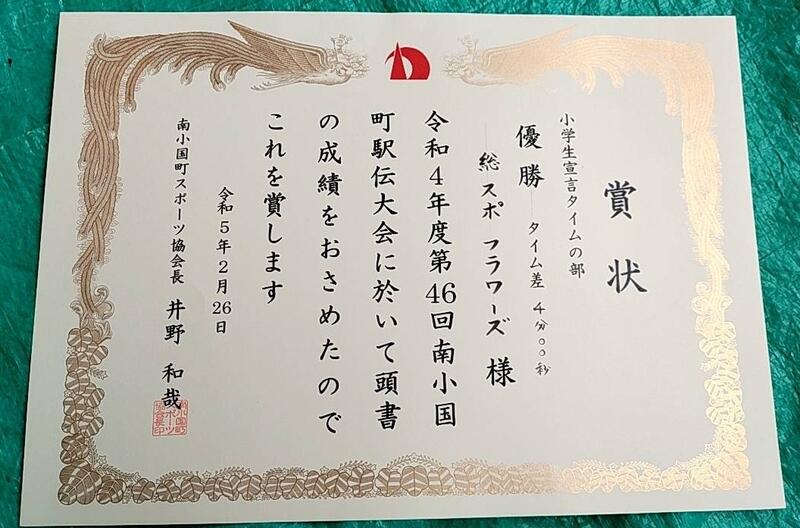 賞状
小学生宣言タイムの部
優勝 タイム差 4分00秒
総スポフラワーズ 様
令和4年度第46回南小国
町駅伝大会に於いて頭書
の成績をおさめたので
これを賞します
令和5年2月26日
南小国町スポーツ協会長 井野 和哉
南小国町
スポーツ
協会長印